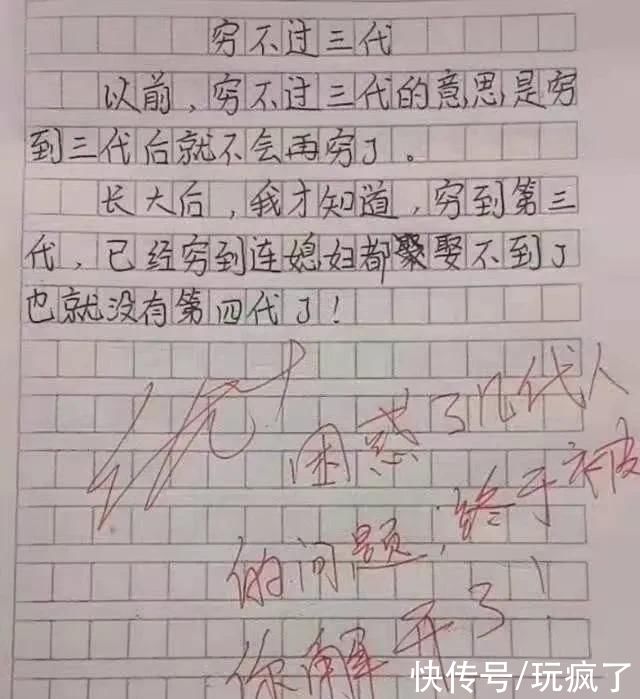 穷不过三代
以前,穷不过三代的意思是穷
到三代后就不会再穷了。
长大后,我才知道,穷到第三
代,已经穷到连媳妇都娶不到了
也就没有第四代了!
优+
困惑了几代人
的问题,终于被
你解开了!
快传号/玩疯了